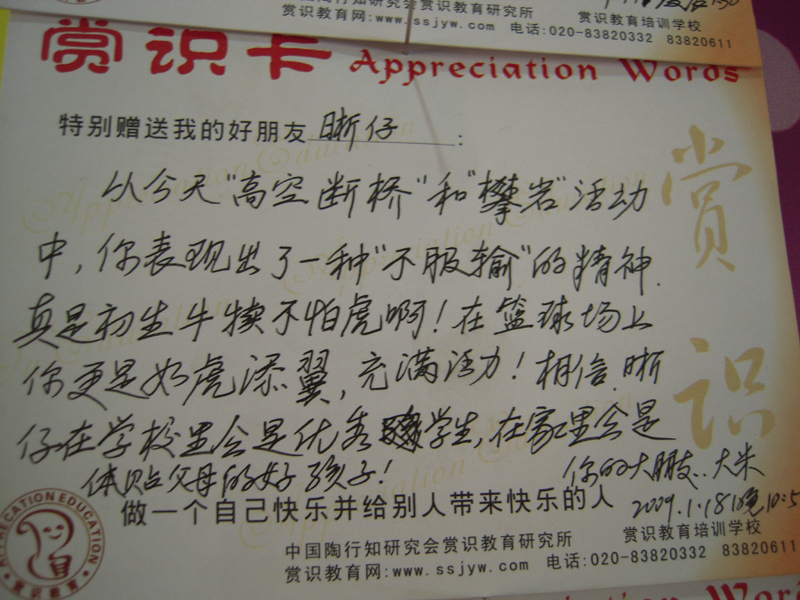 中国陶行知研究会赏识教育研究所 赏识教育培训学校
赏识教育网:www.ssjyw.com 电话:020-83820332 83820611
赏识卡 Appreciation Words
特别赠送我的好朋友 晰仔 :
从今天"高空断桥"和"攀岩"活动
中,你表现出了一种"不服输"的精神.
真是初生牛犊不怕虎啊!在篮球场上
你更是如虎添翼,充满活力!相信.晰
仔在学校里会是优秀学生,在家里会是
体贴父母的好孩子! 你的大朋友..大朱
做一个自己快乐并给别人带来快乐的人 2009.1.18晚10:5
赏识
APPRECATION EDUCATION
赏识教育
中国陶行知研究会赏识教育研究所 赏识教育培训学校
赏识教育网:www.ssjyw.com 电话:020-83820332 83820611
Appreciation Words